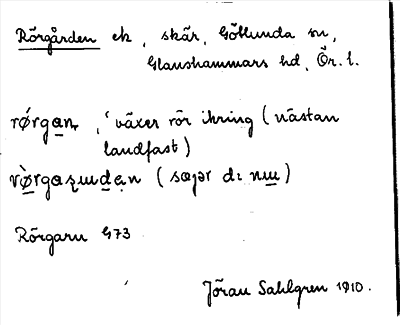 Rörgården ek, skär, Götlunda sn,
Glanshammars hd, Ör. l.
rǿrgan, 'växer rör ikring (nästan
landfast)
(sæjər d: nɯ)
Rörgarn G73
Jöran Sahlgren 1910.